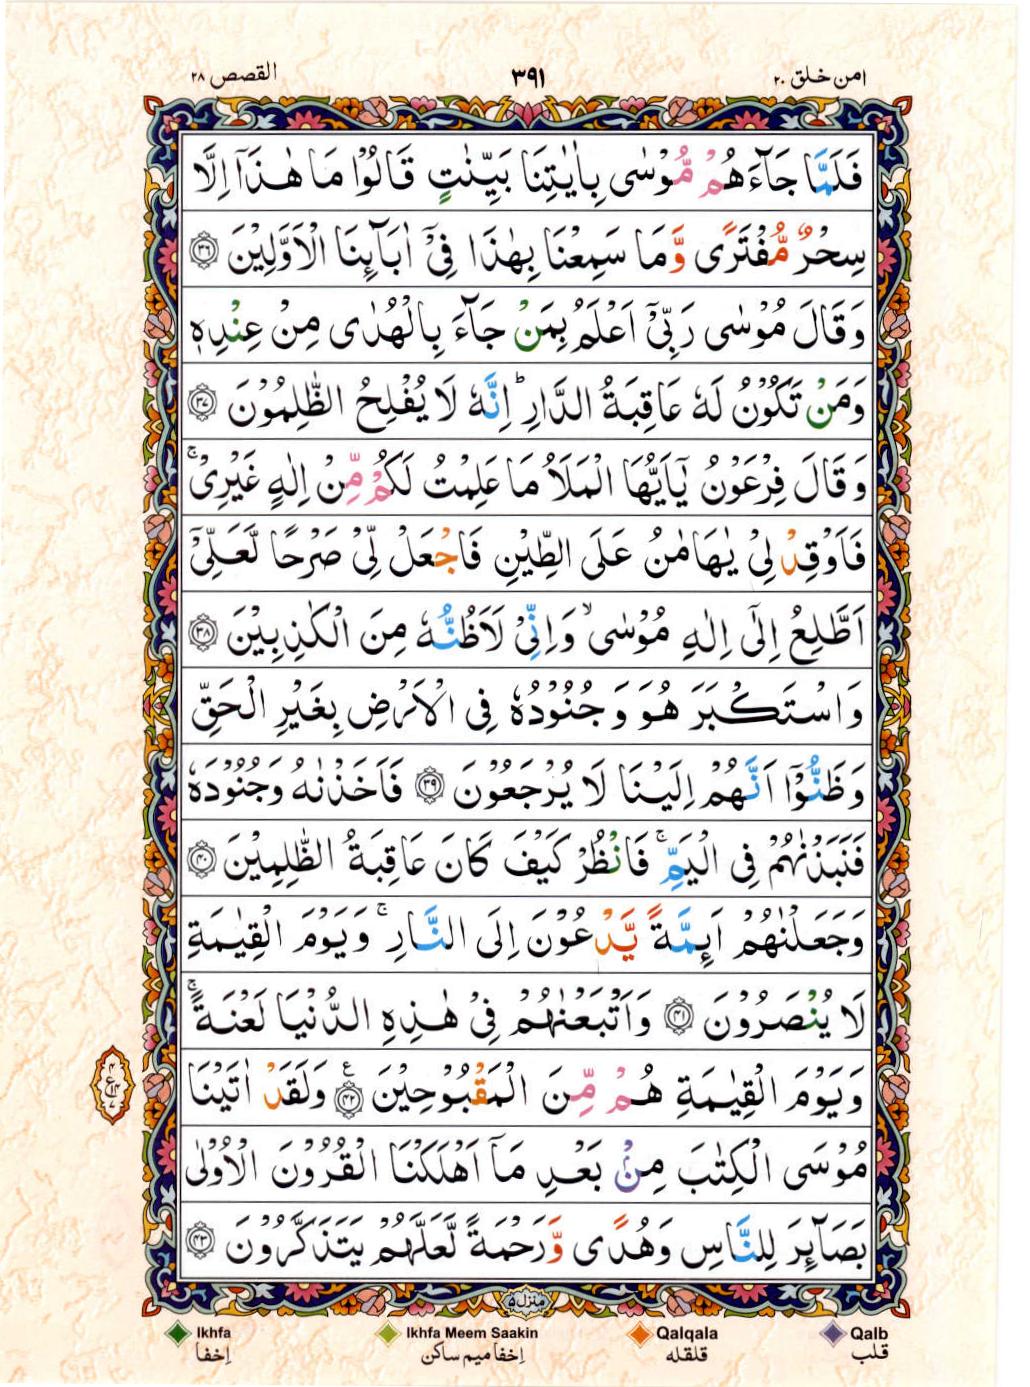 امن خلق ۲۰ ۳۹۱ القصص ۲۸
فَلَمَّا جَآءَهُمْ مُّوْسٰى بِاٰيٰتِنَا بَيِّنٰتٍ قَالُوْا مَا هٰذَاۤ اِلَّا
سِحْرٌ مُّفْتَرًى وَّمَا سَمِعْنَا بِهٰذَا فِيْۤ اٰبَآئِنَا الْاَوَّلِيْنَ ﴿۳۶﴾
وَقَالَ مُوْسٰى رَبِّيْۤ اَعْلَمُ بِمَنْ جَآءَ بِالْهُدٰى مِنْ عِنْدِهٖ
وَمَنْ تَكُوْنُ لَهٗ عَاقِبَةُ الدَّارِ ؕ اِنَّهٗ لَا يُفْلِحُ الظّٰلِمُوْنَ ﴿۳۷﴾
وَقَالَ فِرْعَوْنُ يٰۤاَيُّهَا الْمَلَاُ مَا عَلِمْتُ لَكُمْ مِّنْ اِلٰهٍ غَيْرِيْ ۚ
فَاَوْقِدْ لِيْ يٰهَامٰنُ عَلَى الطِّيْنِ فَاجْعَلْ لِّيْ صَرْحًا لَّعَلِّيْۤ
اَطَّلِعُ اِلٰۤى اِلٰهِ مُوْسٰى ۙ وَاِنِّيْ لَاَظُنُّهٗ مِنَ الْكٰذِبِيْنَ ﴿۳۸﴾
وَاسْتَكْبَرَ هُوَ وَجُنُوْدُهٗ فِى الْاَرْضِ بِغَيْرِ الْحَقِّ
وَظَنُّوْۤا اَنَّهُمْ اِلَيْنَا لَا يُرْجَعُوْنَ ﴿۳۹﴾ فَاَخَذْنٰهُ وَجُنُوْدَهٗ
فَنَبَذْنٰهُمْ فِى الْيَمِّ ۚ فَانْظُرْ كَيْفَ كَانَ عَاقِبَةُ الظّٰلِمِيْنَ ﴿۴۰﴾
وَجَعَلْنٰهُمْ اَئِمَّةً يَّدْعُوْنَ اِلَى النَّارِ ۚ وَيَوْمَ الْقِيٰمَةِ
لَا يُنْصَرُوْنَ ﴿۴۱﴾ وَاَتْبَعْنٰهُمْ فِيْ هٰذِهِ الدُّنْيَا لَعْنَةً ۚ
وَيَوْمَ الْقِيٰمَةِ هُمْ مِّنَ الْمَقْبُوْحِيْنَ ﴿۴۲﴾ وَلَقَدْ اٰتَيْنَا
مُوْسَى الْكِتٰبَ مِنْۢ بَعْدِ مَاۤ اَهْلَكْنَا الْقُرُوْنَ الْاُوْلٰى
بَصَآئِرَ لِلنَّاسِ وَهُدًى وَّرَحْمَةً لَّعَلَّهُمْ يَتَذَكَّرُوْنَ ﴿۴۳﴾
منزل ۵
Ikhfa Ikhfa Meem Saakin Qalqala Qalb
اِخفا اِخفا میم ساکن قلقله قلب